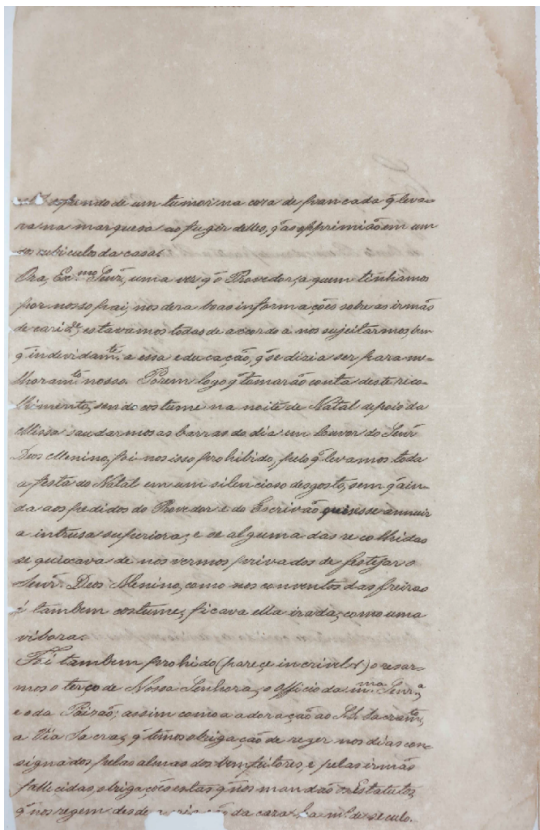 de um tumor na cara de pancada q̃ leva-
va na marqueza ao fugir delles, q̃ as opprimisão em um
dos cubiculos da casa.
Ora, Ex.mo Senr̃, uma vez q̃ o Provedor, a quem tinhamos
por nosso pai, nos dera boas informações sobre as irmãs
de carid.e, estavamos todas de acordo a nos sujeitarmos, bem
q̃ individam.te, a essa educação, q̃ se dizia ser para me-
lhoram.to nosso. Porem logo q̃ tomarão conta deste reco-
lhimento, sendo costume na noite de Natal depois da
Missa saudarmos as barras do dia em louvor do Senr̃
Deos Menino, foi nos isso prohibido, pelo q̃ levamos toda
a festa do Natal em um silencioso desgosto, sem q̃ ain-
da aos pedidos do Provedor e do Escrivão quizesse annuir
a intrusa superiora; e se alguma das recolhidas
se queixava de nos vermos privados de festejar o
Senr̃ Deos Menino, como nos conventos das freiras
é tambem costume, ficava ella irada, como uma
vibora.
Foi tambem prohibido (pareçe incrivel!) o resar-
mos o terço de Nossa Senhora, o officio da m.ma Senr.a
e o da Paixão, assim como a adoração ao SS. Sacram.to,
a Via Sacra, q̃ temos obrigação de rezar nos dias con-
signados pelas almas dos bemfeitores, e pelas irmãs
fallecidas, obrigações estas q̃ nos mandão os Estatutos,
q̃ nos regem desde a da casa ha m.to de seculo.